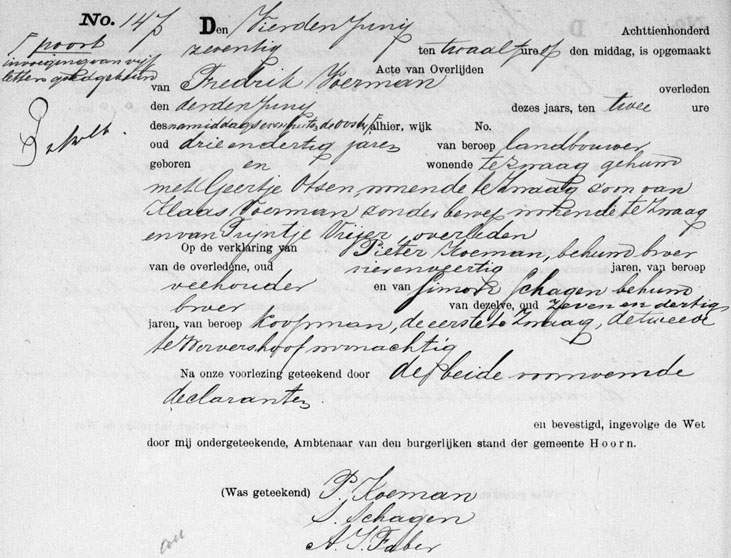 No. 147
Den Vierden Junij Achttienhonderd
zeventig ten twaalf ure op den middag, is opgemaakt
Acte van Overlijden
van Fredrik Koeman overleden
den derden Junij dezes jaars, ten twee ure
des namiddags even buiten de Ooster⌈ alhier, wijk No.
oud drieendertig jaren van beroep landbouwer
geboren en wonende te Zwaag gehuwd
met Geertje Otsen, wonende te Zwaag zoon van
Klaas Koeman zonder beroep wonende te Zwaag
en van Trijntje overleden
Op de verklaring van Pieter Koeman, behuwd broer
van de overledene, oud vierenveertig jaren, van beroep
veehouder en van Simon Schagen behuwd
broer van dezelve, oud zeven en dertig
jaren, van beroep Koopman, de eerste te Zwaag, de tweede
te Wervershoof woonachtig
Na onze voorlezing geteekend door de beide voornoemde
declaranten.
en bevestigd, ingevolge de Wet
door mij ondergeteekende, Ambtenaar van den burgerlijken stand der gemeente Hoorn.
(Was geteekend) P. Koeman
S. Schagen
A. S. Faber
⌈ poort
invoeging van vijf
letters goedgekeurd